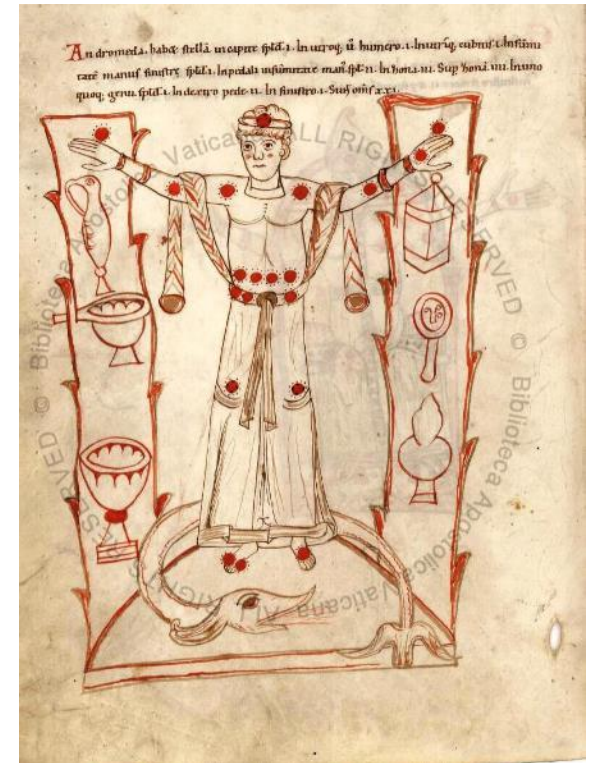 Andromeda. habet stellā in capite spłd .i. In utroq; ū humero .i. In utriq; cubitis .i. In sūmi
tate manus sinistrę spłd .i. In pedali in sūmitate man; spł .ii. In zona .iii. Sup zonā .iiii. In uno
quoq; genu spłd .i. In dextro pede .ii. In sinistro .i. Sunt om̄s xxi.
© Biblioteca Apostolica Vaticana ALL RIGHTS RESERVED
© Biblioteca Apostolica Vaticana ALL RIGHTS RESERVED